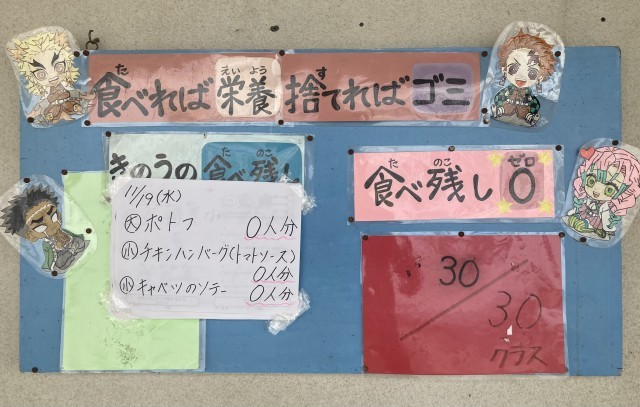 食べれば栄養 捨てればゴミ
た えいよう す
きのうの食べ残し
た のこ
11/19(水)
大 ポトフ 0人分
小 チキンハンバーグ(トマトソース)
0人分
小 キャベツのソテー 0人分
食べ残し0
た のこ ゼロ
30/30
クラス